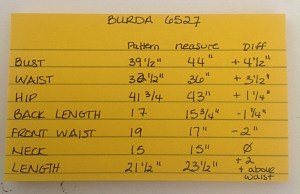 BURDA 6527
Pattern measure Diff
BUST 39 1/2" 44" + 4 1/2"
WAIST 32 1/2" 36" + 3 1/2"
HIP 41 3/4 43" + 1 1/4"
BACK LENGTH 17 15 3/4" -1 1/4"
FRONT WAIST 19 17" -2"
NECK 15 15" Ø
LENGTH 21 1/2" 23 1/2" +2
+ above
waist